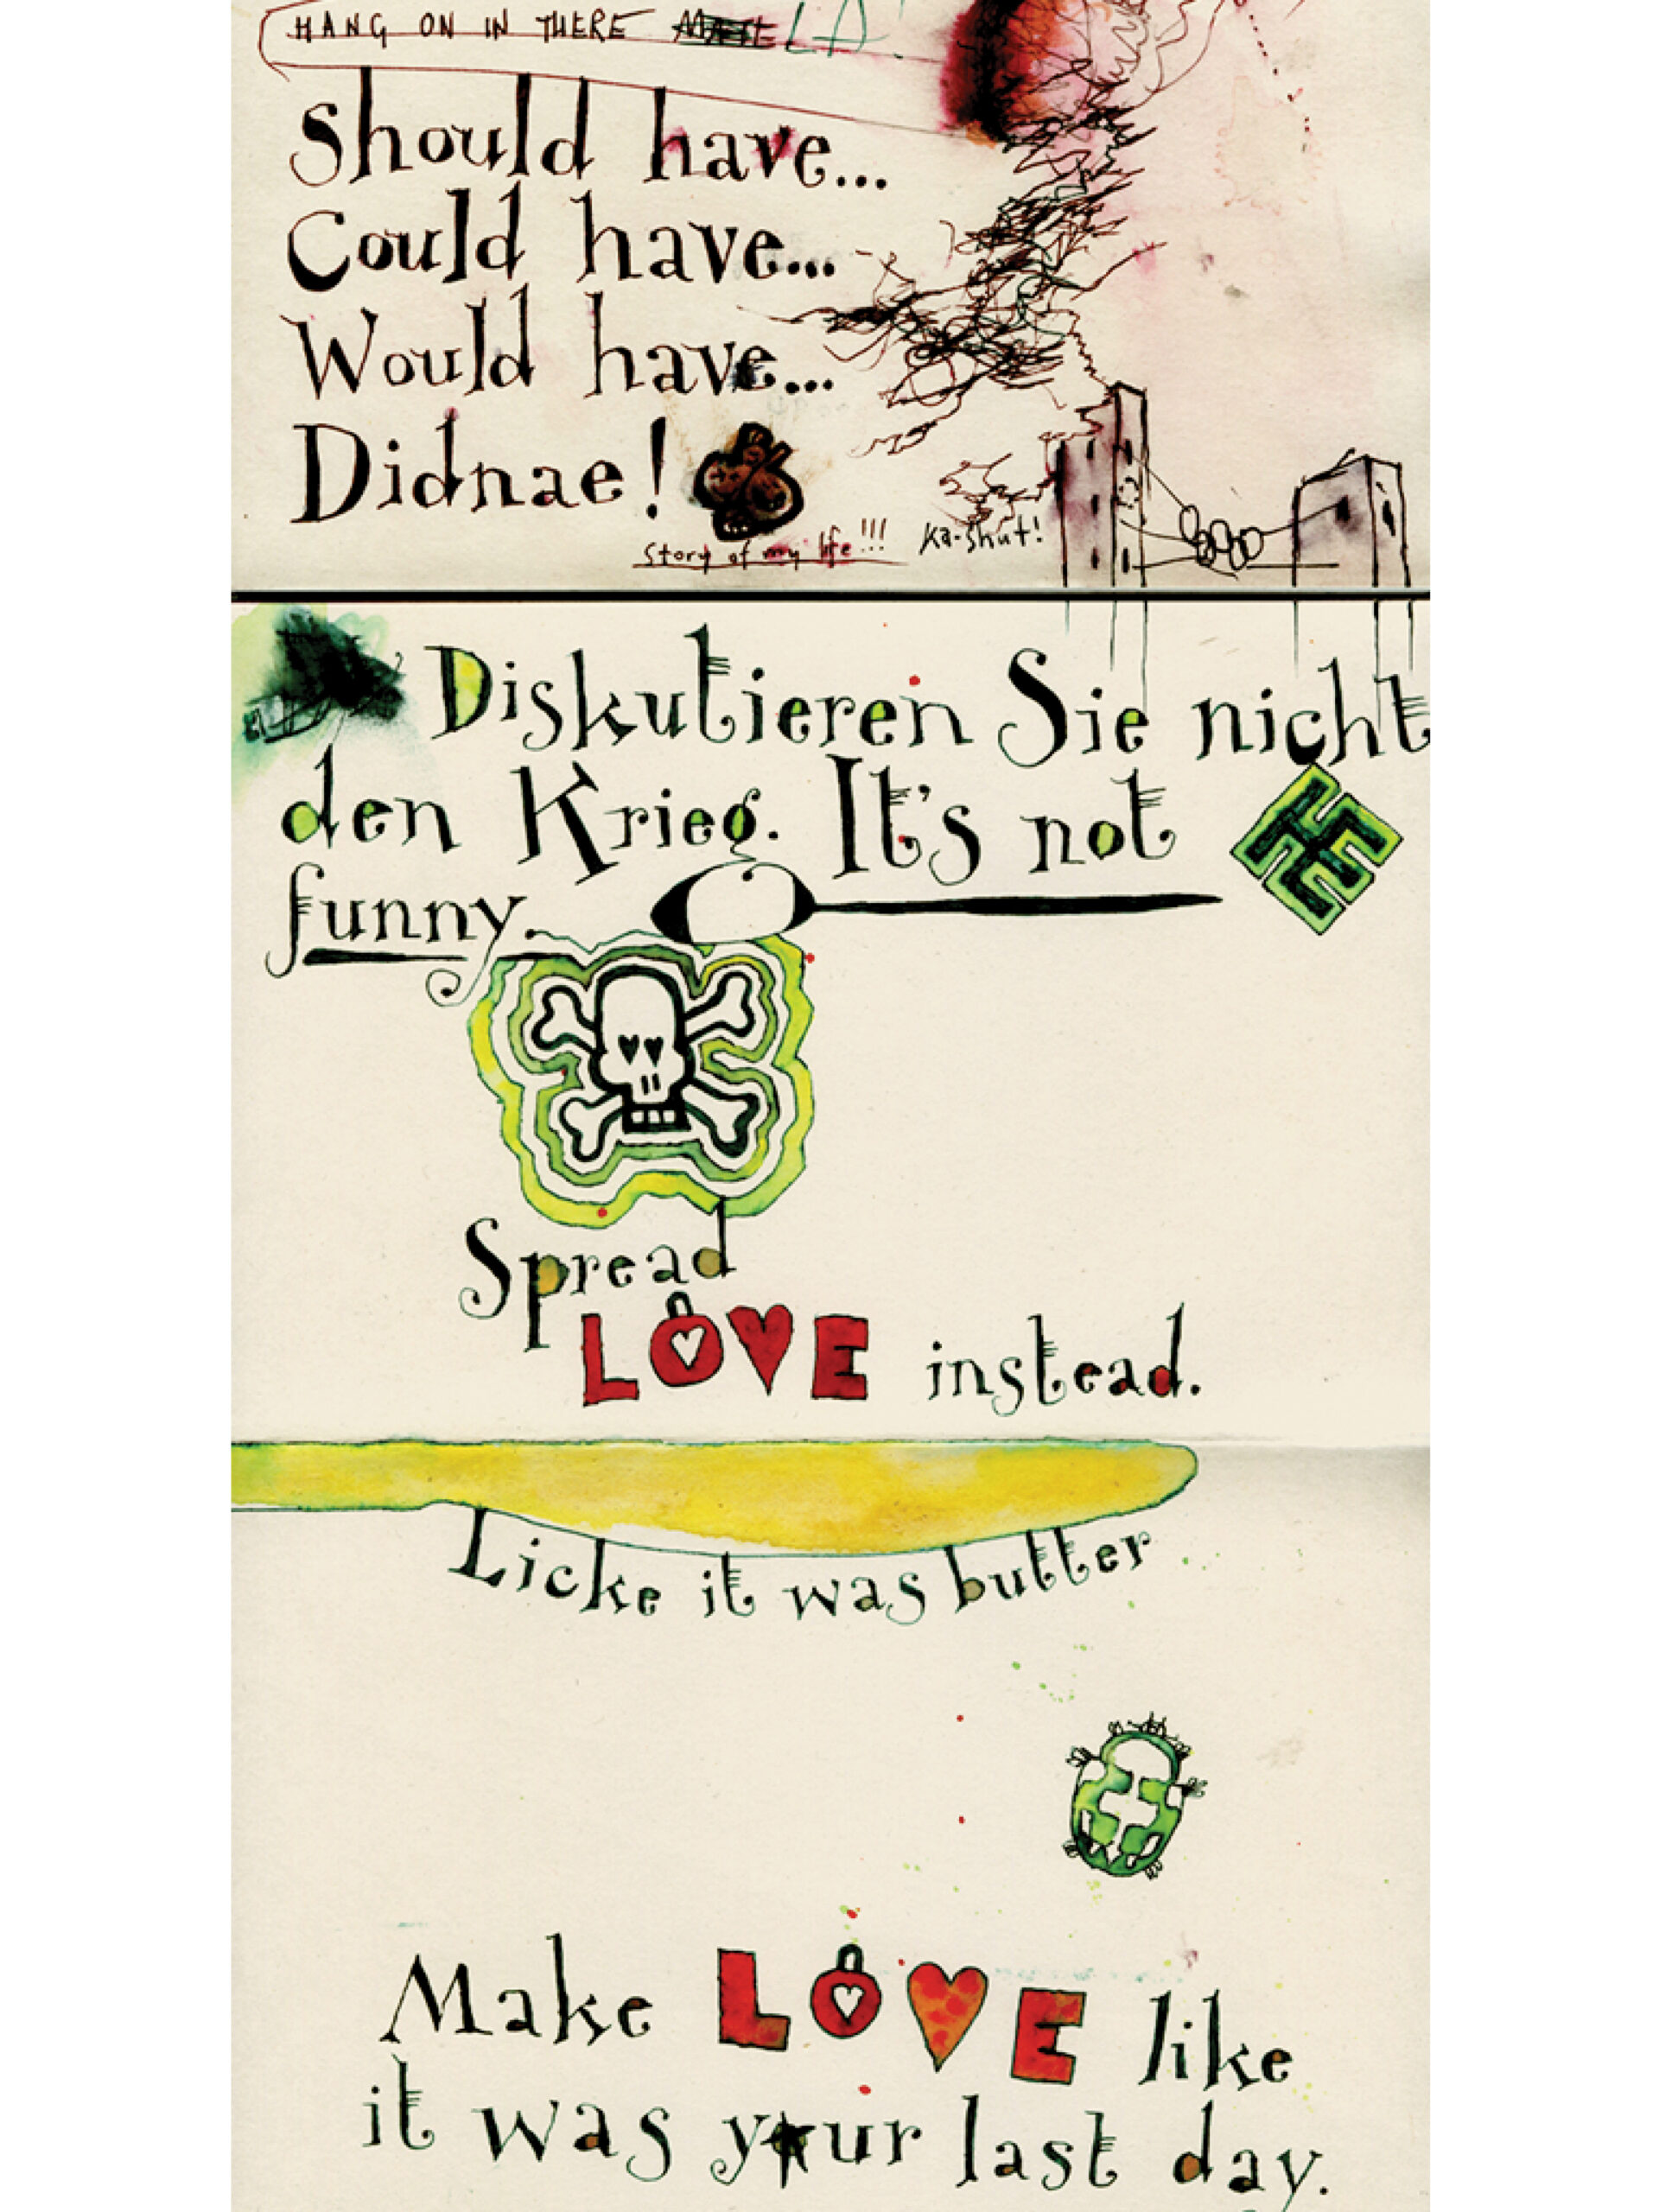 HANG ON IN THERE
Should have...
Could have...
Would have...
Didnae!
Story of my life!!!
Ka-shut!
Diskutieren Sie nicht
den Krieg. It's not
funny.
Spread
LOVE instead.
Licke it was butter
Make LOVE like
it was your last day.